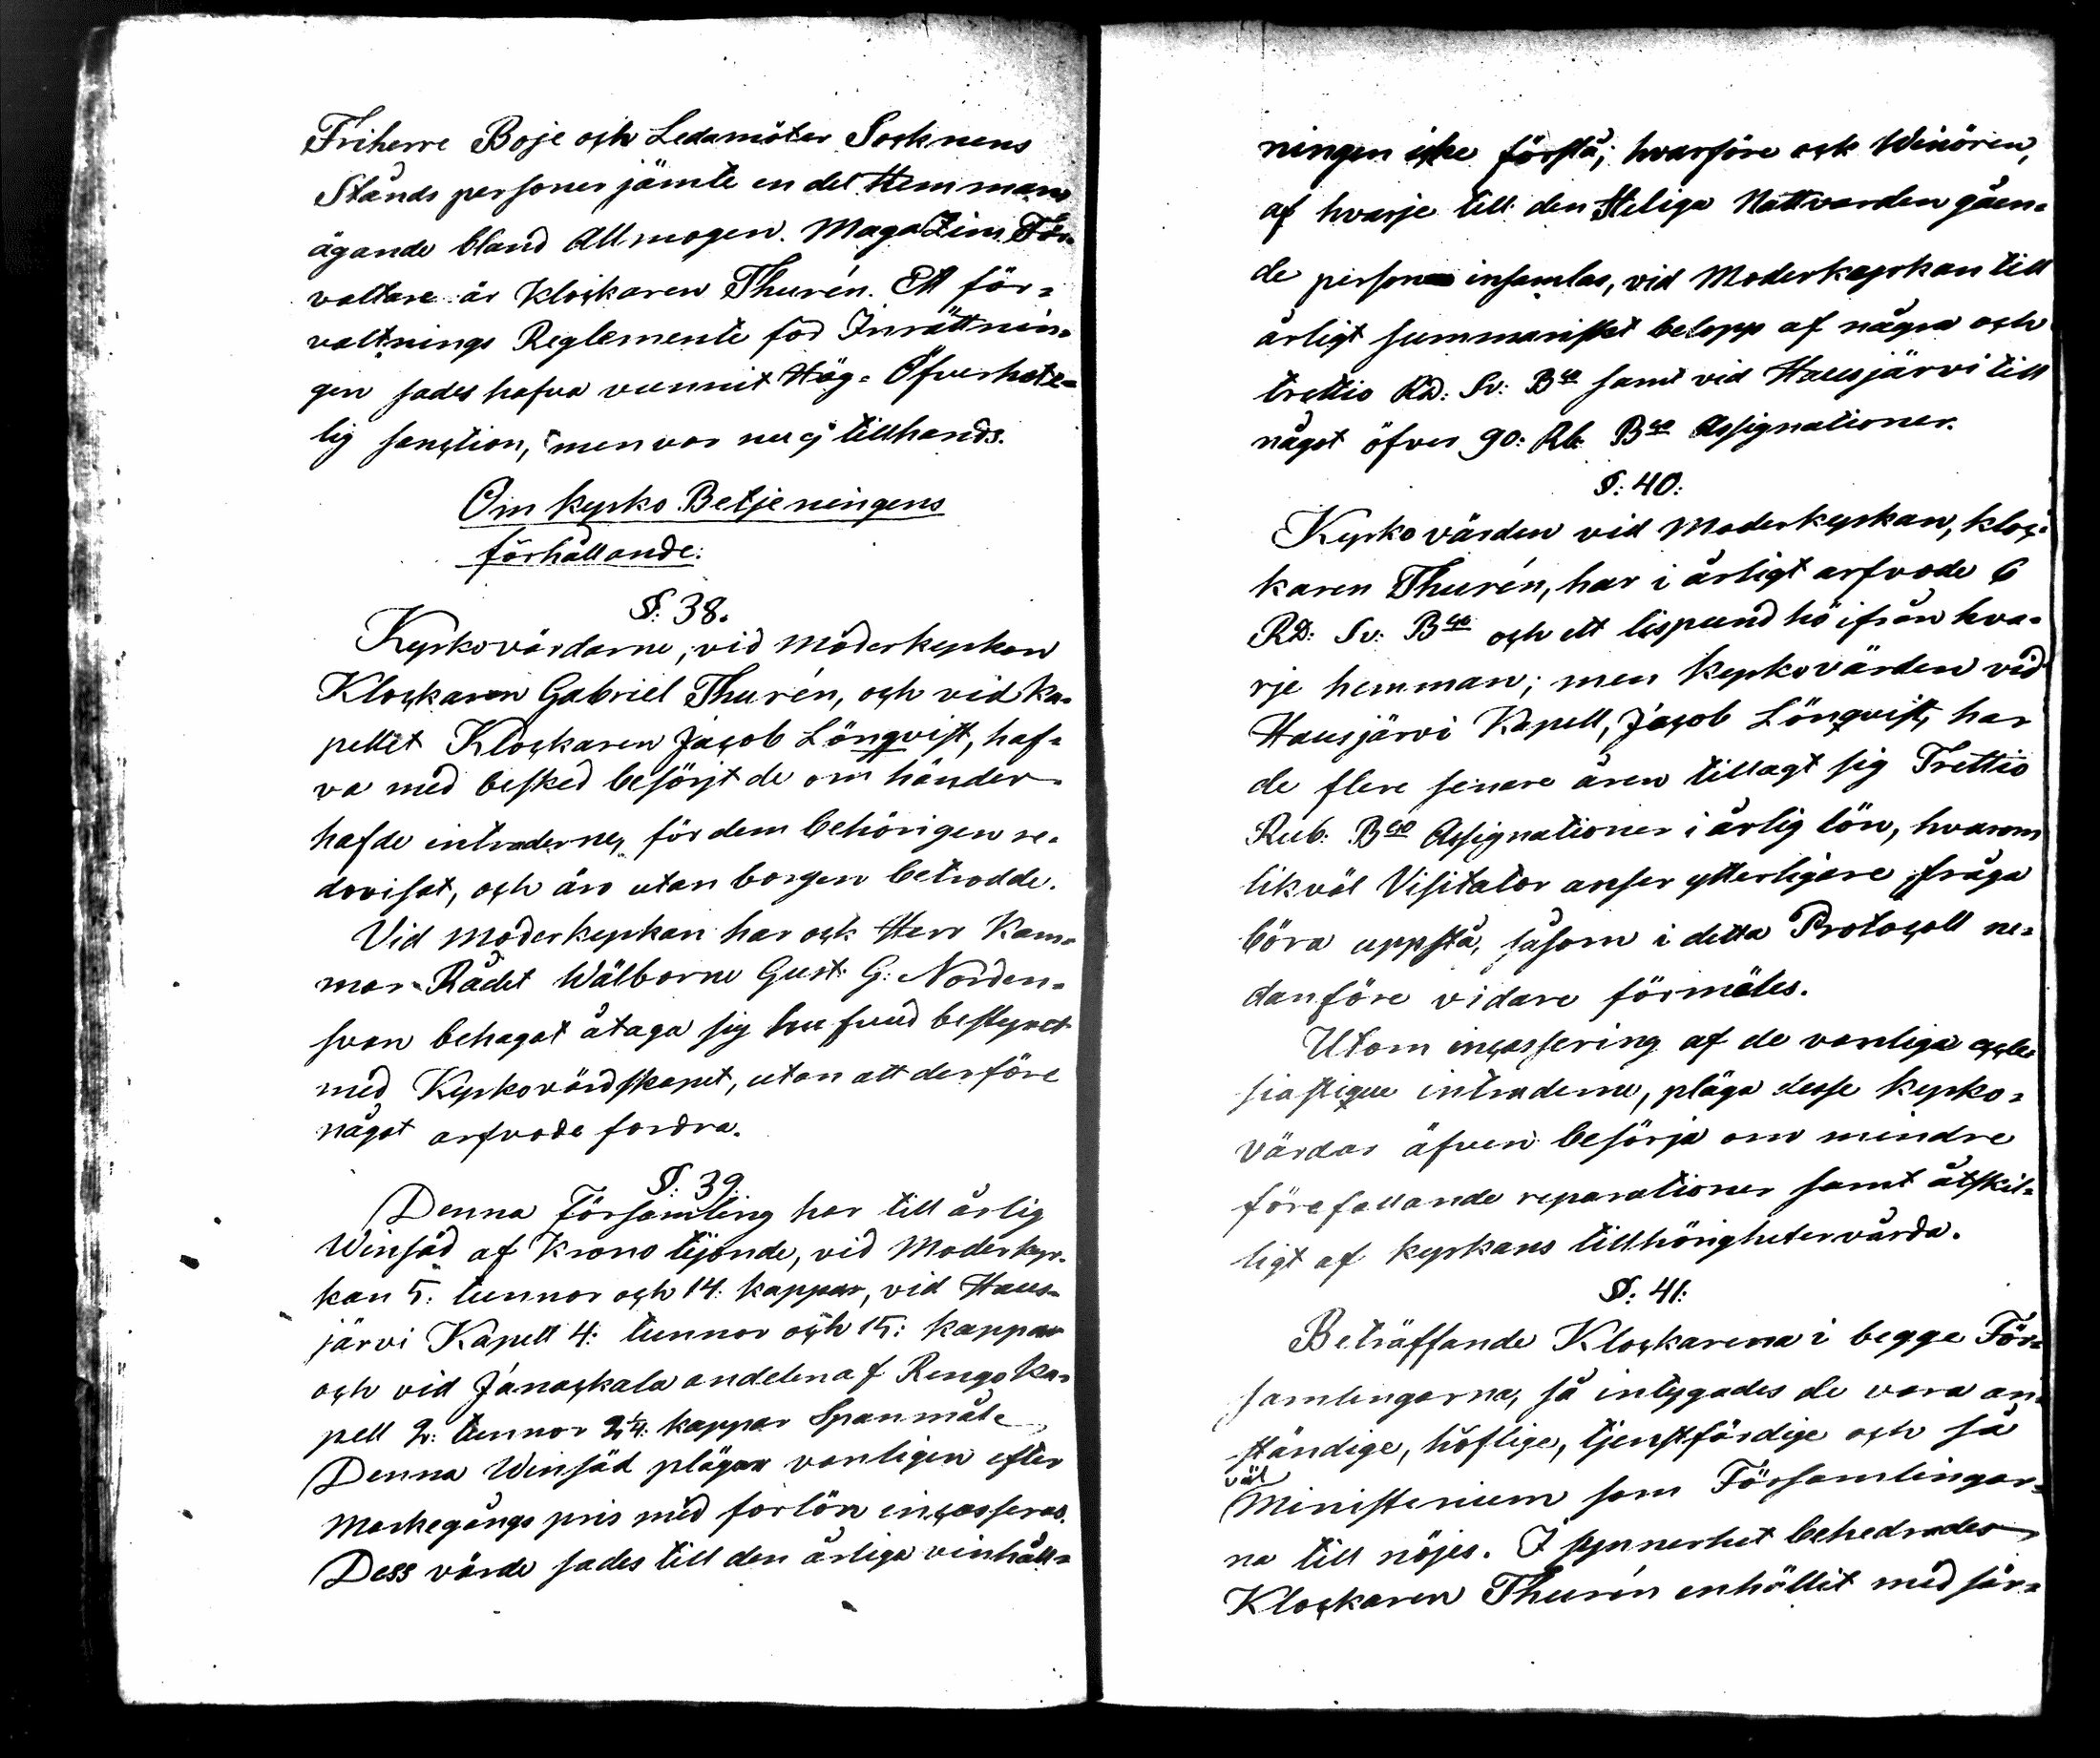 Friherre Boje och Ledamöter Socknens
Stånds personer jämte en del Hemmans
ägande bland Allmogen. MagaZins För-
valtare är Klockaren Thurén. Ett för-
valtnings Reglemente för Inrättnin-
gen sades hafva vunnit Hög-Öfverhete-
lig sanction, men var nu ej tillhands.
Om Kyrko Betjeningens
förhållande:
§: 38.
Kyrkovärdarne, vid Moderkyrkan
Klockaren Gabriel Thurén, och vid Ka-
pellet Klockaren Jacob Lönqvist, haf-
va med besked besörjt de om händer-
hafde intraderne, för dem behörigen re-
dovisat, och äro utan borgen betrodde.
Vid Moderkyrkan har ock Herr Kam-
mar-Rådet Wälborne Gust. G. Norden-
svan behagat åtaga sig hufvud bestyret
med Kyrkovärdskapet, utan att derföre
något arfvode fordra.
§: 39.
Denna Församling har till årlig
Winsäd af Krono tijonde, vid Moderkyr-
kan 5: tunnor och 14: kappar, vid Haus-
järvi Kapell 4: tunnor och 15: kappar
och vid Janackala andelen af Rengo Ka-
pell 2: tunnor 2 1/4: kappar Spanmål.
Denna Winsäd plägar vanligen efter
Markegångs pris med forlön incasseras.
Dess värde sades till den årliga vinhåll-
ningen icke förslå; hvarföre ock Winören,
af hvarje till den Heliga Nattvarden gåen-
de person insamlas, vid Moderkyrkan till
årligt summariskt belopp af några och
trettio RD: Sv: Bco samt vid Hausjärvi till
något öfver 90: Rb: Bco Assignationer.
§: 40:
Kyrkovärden vid Moderkyrkan, kloc-
karen Thurén, har i årligt arfvode 6
RD: Sv: Bco och ett lispund hö ifrån hva-
rje hemman; men kyrkovärden vid
Hausjärvi Kapell, Jacob Lönqvist, har
de flere senare åren tillagt sig Trettio
Rub: Bco Assignationer i årlig lön, hvarom
likväl Visitator anser ytterligare fråga
böra uppstå, såsom i detta Protocoll ne-
danföre vidare förmäles.
Utom incassering af de vanliga eccle
siastique intraderne, pläga desse kyrko-
värdar äfven besörja om mindre
förefallande reparationer samt åtskil-
ligt af kyrkans tillhörigheter vårda.
§: 41:
Beträffande Klockarena i begge För-
samlingarna, så intygades de vara an-
ständige, höflige, tjenstfärdige och så
väl
Ministerium som Församlingar-
na till nöjes. I synnerhet behedrades
Klockaren Thurén enhällit med sär-